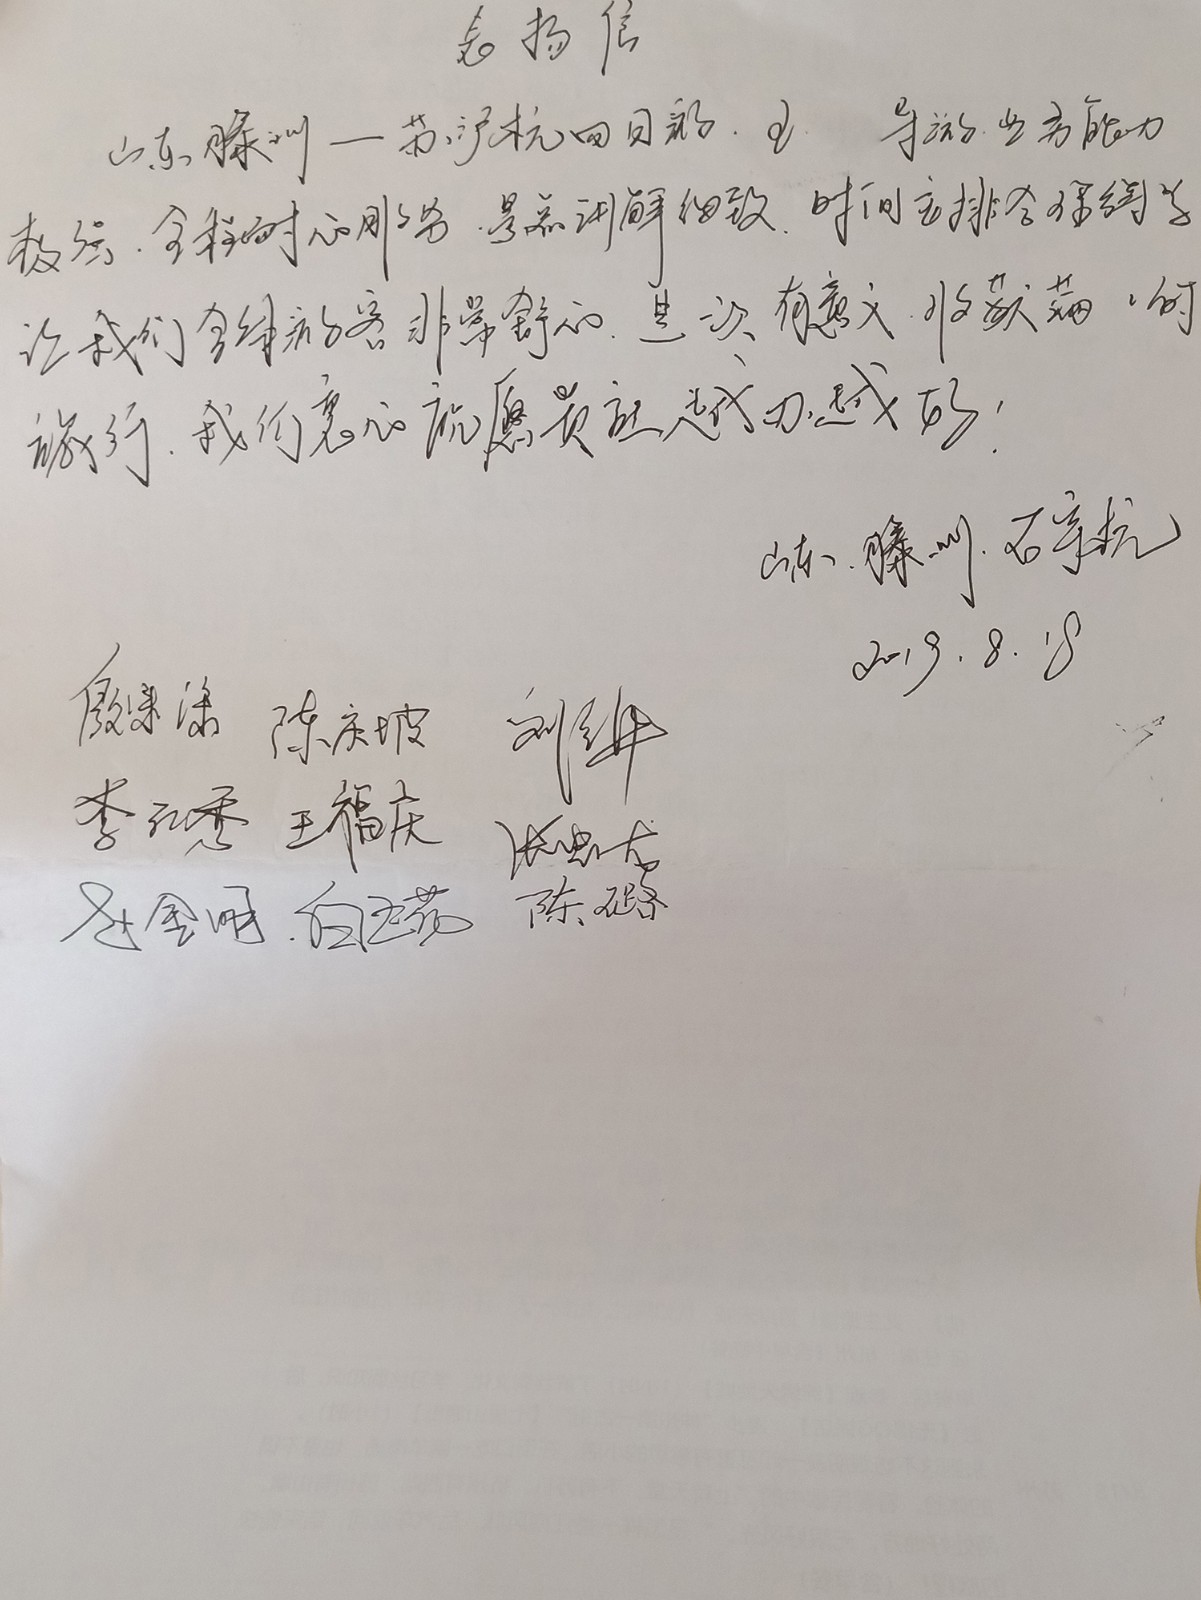 表扬信
山东滕州—苏沪杭四日游. 王 导游业务能力
极强.全程耐心服务.景点讲解细致.时间安排合理得当
让我们全体游客非常舒心.是一次有意义.收获满满的
旅行.我们衷心祝愿贵社越办越好!
山东.滕州.石宗杭
2019.8.18
陈庆坡 刘
李红秀 王福庆
赵金明 白玉荷 陈璐